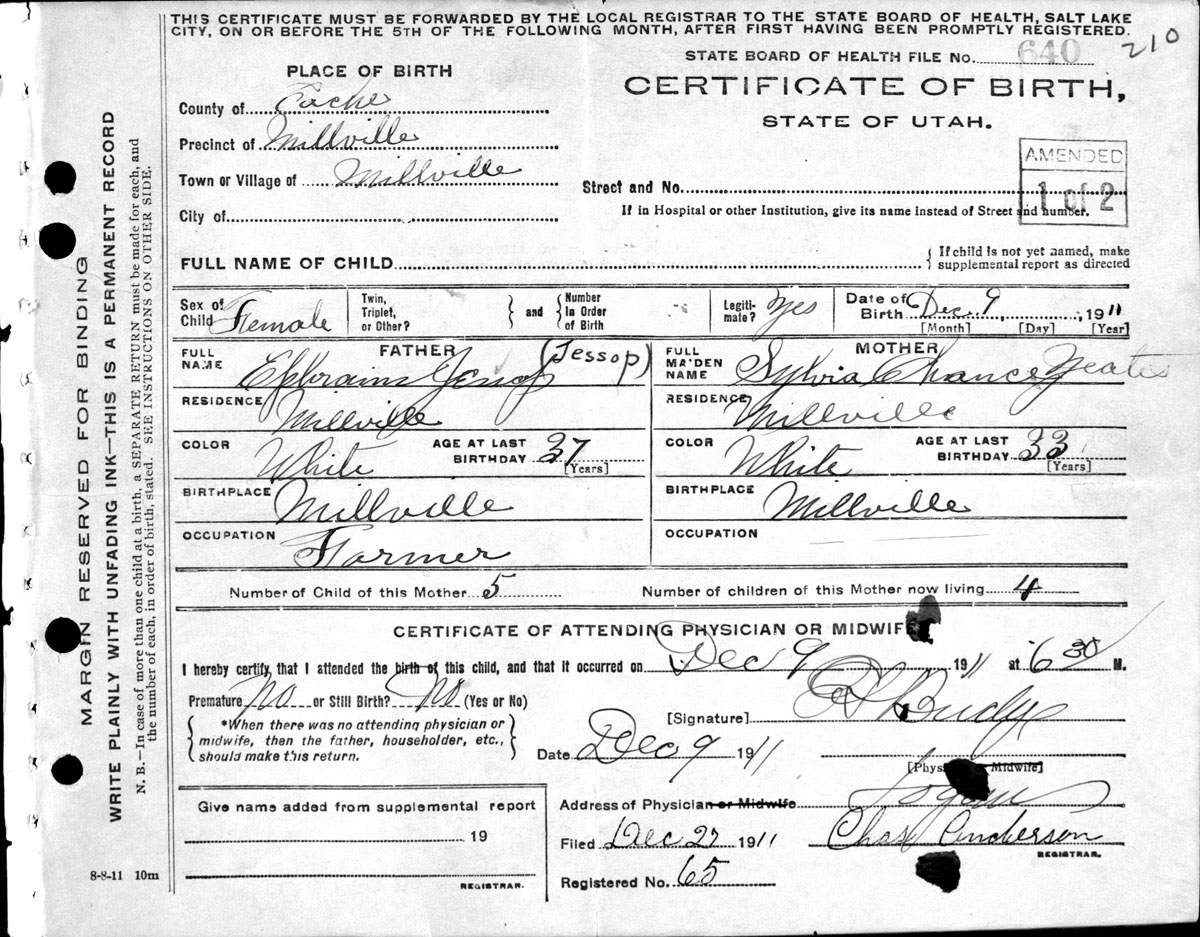 THIS CERTIFICATE MUST BE FORWARDED BY THE LOCAL REGISTRAR TO THE STATE BOARD OF HEALTH, SALT LAKE
CITY, ON OR BEFORE THE 5TH OF THE FOLLOWING MONTH, AFTER FIRST HAVING BEEN PROMPTLY REGISTERED.
210
STATE BOARD OF HEALTH FILE No. 640
PLACE OF BIRTH
CERTIFICATE OF BIRTH,
STATE OF UTAH.
County of Cache
Precinct of Millville
Town or Village of Millville
City of
AMENDED
1 of 2
Street and No.
If in Hospital or other Institution, give its name instead of Street and number.
FULL NAME OF CHILD
{ If child is not yet named, make
supplemental report as directed
Sex of Child Female
Twin, Triplet, or Other?
} and {
Number In Order of Birth
Legiti-mate? Yes
Date of Birth Dec 9, 1911
[Month] [Day] [Year]
FATHER
FULL NAME Ephraim Jessop (Jessop)
RESIDENCE Millville
COLOR White AGE AT LAST BIRTHDAY 37 [Years]
BIRTHPLACE Millville
OCCUPATION Farmer
MOTHER
FULL MAIDEN NAME Sylvia Chancy Yeates
RESIDENCE Millville
COLOR White AGE AT LAST BIRTHDAY 33 [Years]
BIRTHPLACE Millville
OCCUPATION
Number of Child of this Mother 5 Number of children of this Mother now living 4
CERTIFICATE OF ATTENDING PHYSICIAN OR MIDWIFE
I hereby certify, that I attended the birth of this child, and that it occurred on Dec 9 1911 at 6 30 M.
Premature No or Still Birth? No (Yes or No)
{ *When there was no attending physician or
midwife, then the father, householder, etc.,
should make this return. }
[Signature] Budge
Date Dec 9 1911
[Phys Midwife]
Address of Physician or Midwife Logan
Filed Dec 27 1911 Chas Anderson
REGISTRAR.
Registered No. 65
Give name added from supplemental report
19
REGISTRAR.
8-8-11 10m
MARGIN RESERVED FOR BINDING
WRITE PLAINLY WITH UNFADING INK—THIS IS A PERMANENT RECORD
N. B.—In case of more than one child at a birth, a SEPARATE RETURN must be made for each, and
the number of each, in order of birth, stated. SEE INSTRUCTIONS ON OTHER SIDE.